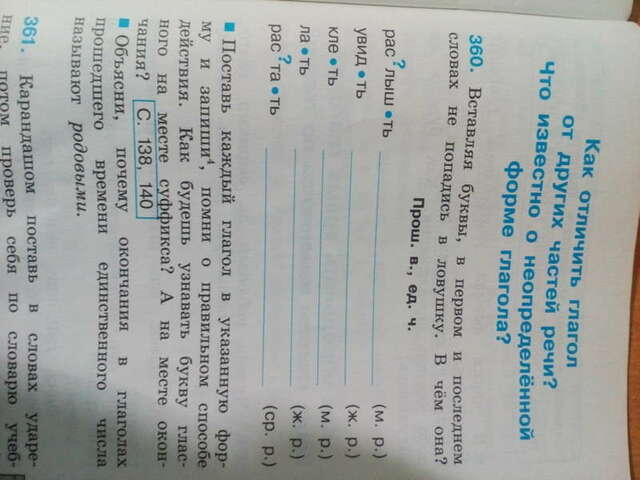 Как отличить глагол
от других частей речи?
Что известно о неопределённой
форме глагола?
360. Вставляя буквы, в первом и последнем
словах не попадись в ловушку. В чём она?
Прош. в., ед. ч.
рас?лыш•ть (м. р.)
увид•ть (ж. р.)
кле•ть (м. р.)
ла•ть (ж. р.)
рас?та•ть (ср. р.)
■ Поставь каждый глагол в указанную фор-
му и запиши⁴, помни о правильном способе
действия. Как будешь узнавать букву глас-
ного на месте суффикса? А на месте окон-
чания? С. 138, 140
■ Объясни, почему окончания в глаголах
прошедшего времени единственного числа
называют родовыми.
361. Карандашом поставь в словах ударе-
ние, потом проверь себя по словарю учеб-